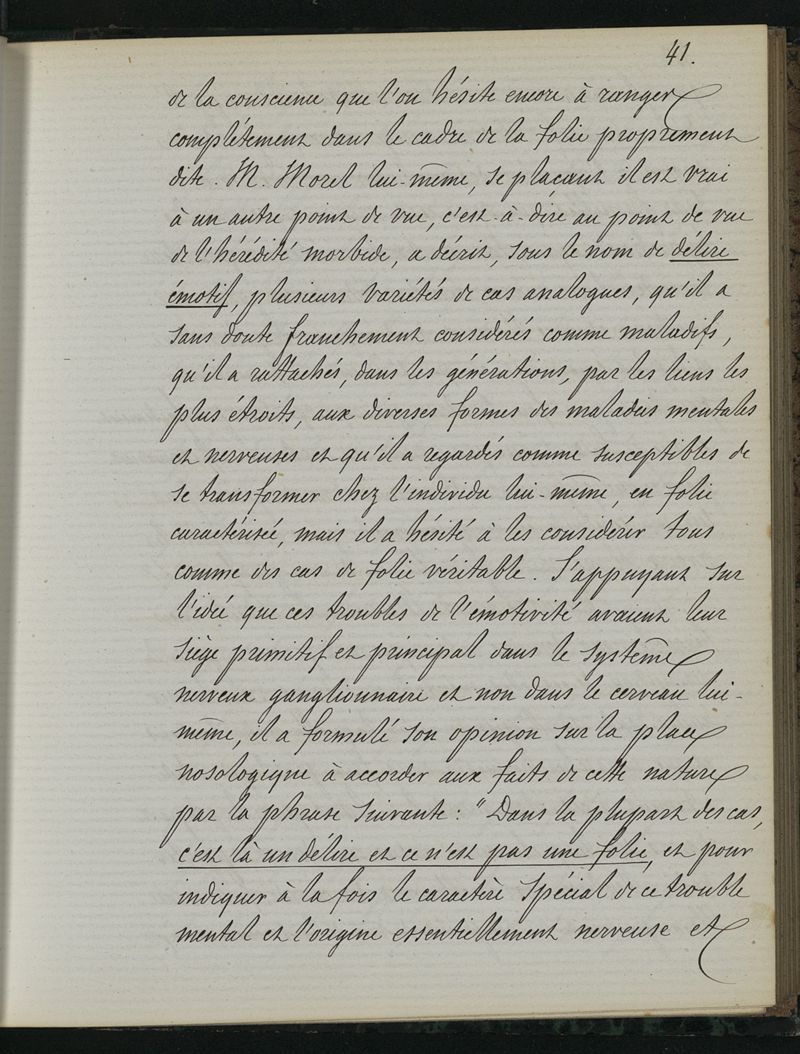 41.
de la conscience que l'on hésite encore à ranger
complétement dans le cadre de la folie proprement
dite. M. Morel lui-même, se plaçant il est vrai
à un autre point de vue, c'est-à-dire au point de vue
de l'hérédité morbide, a décrit, sous le nom de délire
émotif, plusieurs variétés de cas analogues, qu'il a
sans doute franchement considérés comme maladifs,
qu'il a rattachés, dans les générations, par les liens les
plus étroits, aux diverses formes des maladies mentales
et nerveuses et qu'il a regardés comme susceptibles de
se transformer chez l'individu lui-même, en folie
caractérisée, mais il a hésité à les considérer tous
comme des cas de folie véritable. S'appuyant sur
l'idée que ces troubles de l'émotivité avaient leur
siège primitif et principal dans le système
nerveux ganglionnaire et non dans le cerveau lui-
même, il a formulé son opinion sur la place
nosologique à accorder aux faits de cette nature
par la phrase suivante : "Dans la plupart des cas,
c'est là un délire et ce n'est pas une folie, et pour
indiquer à la fois le caractère spécial de ce trouble
mental et l'origine essentiellement nerveuse et